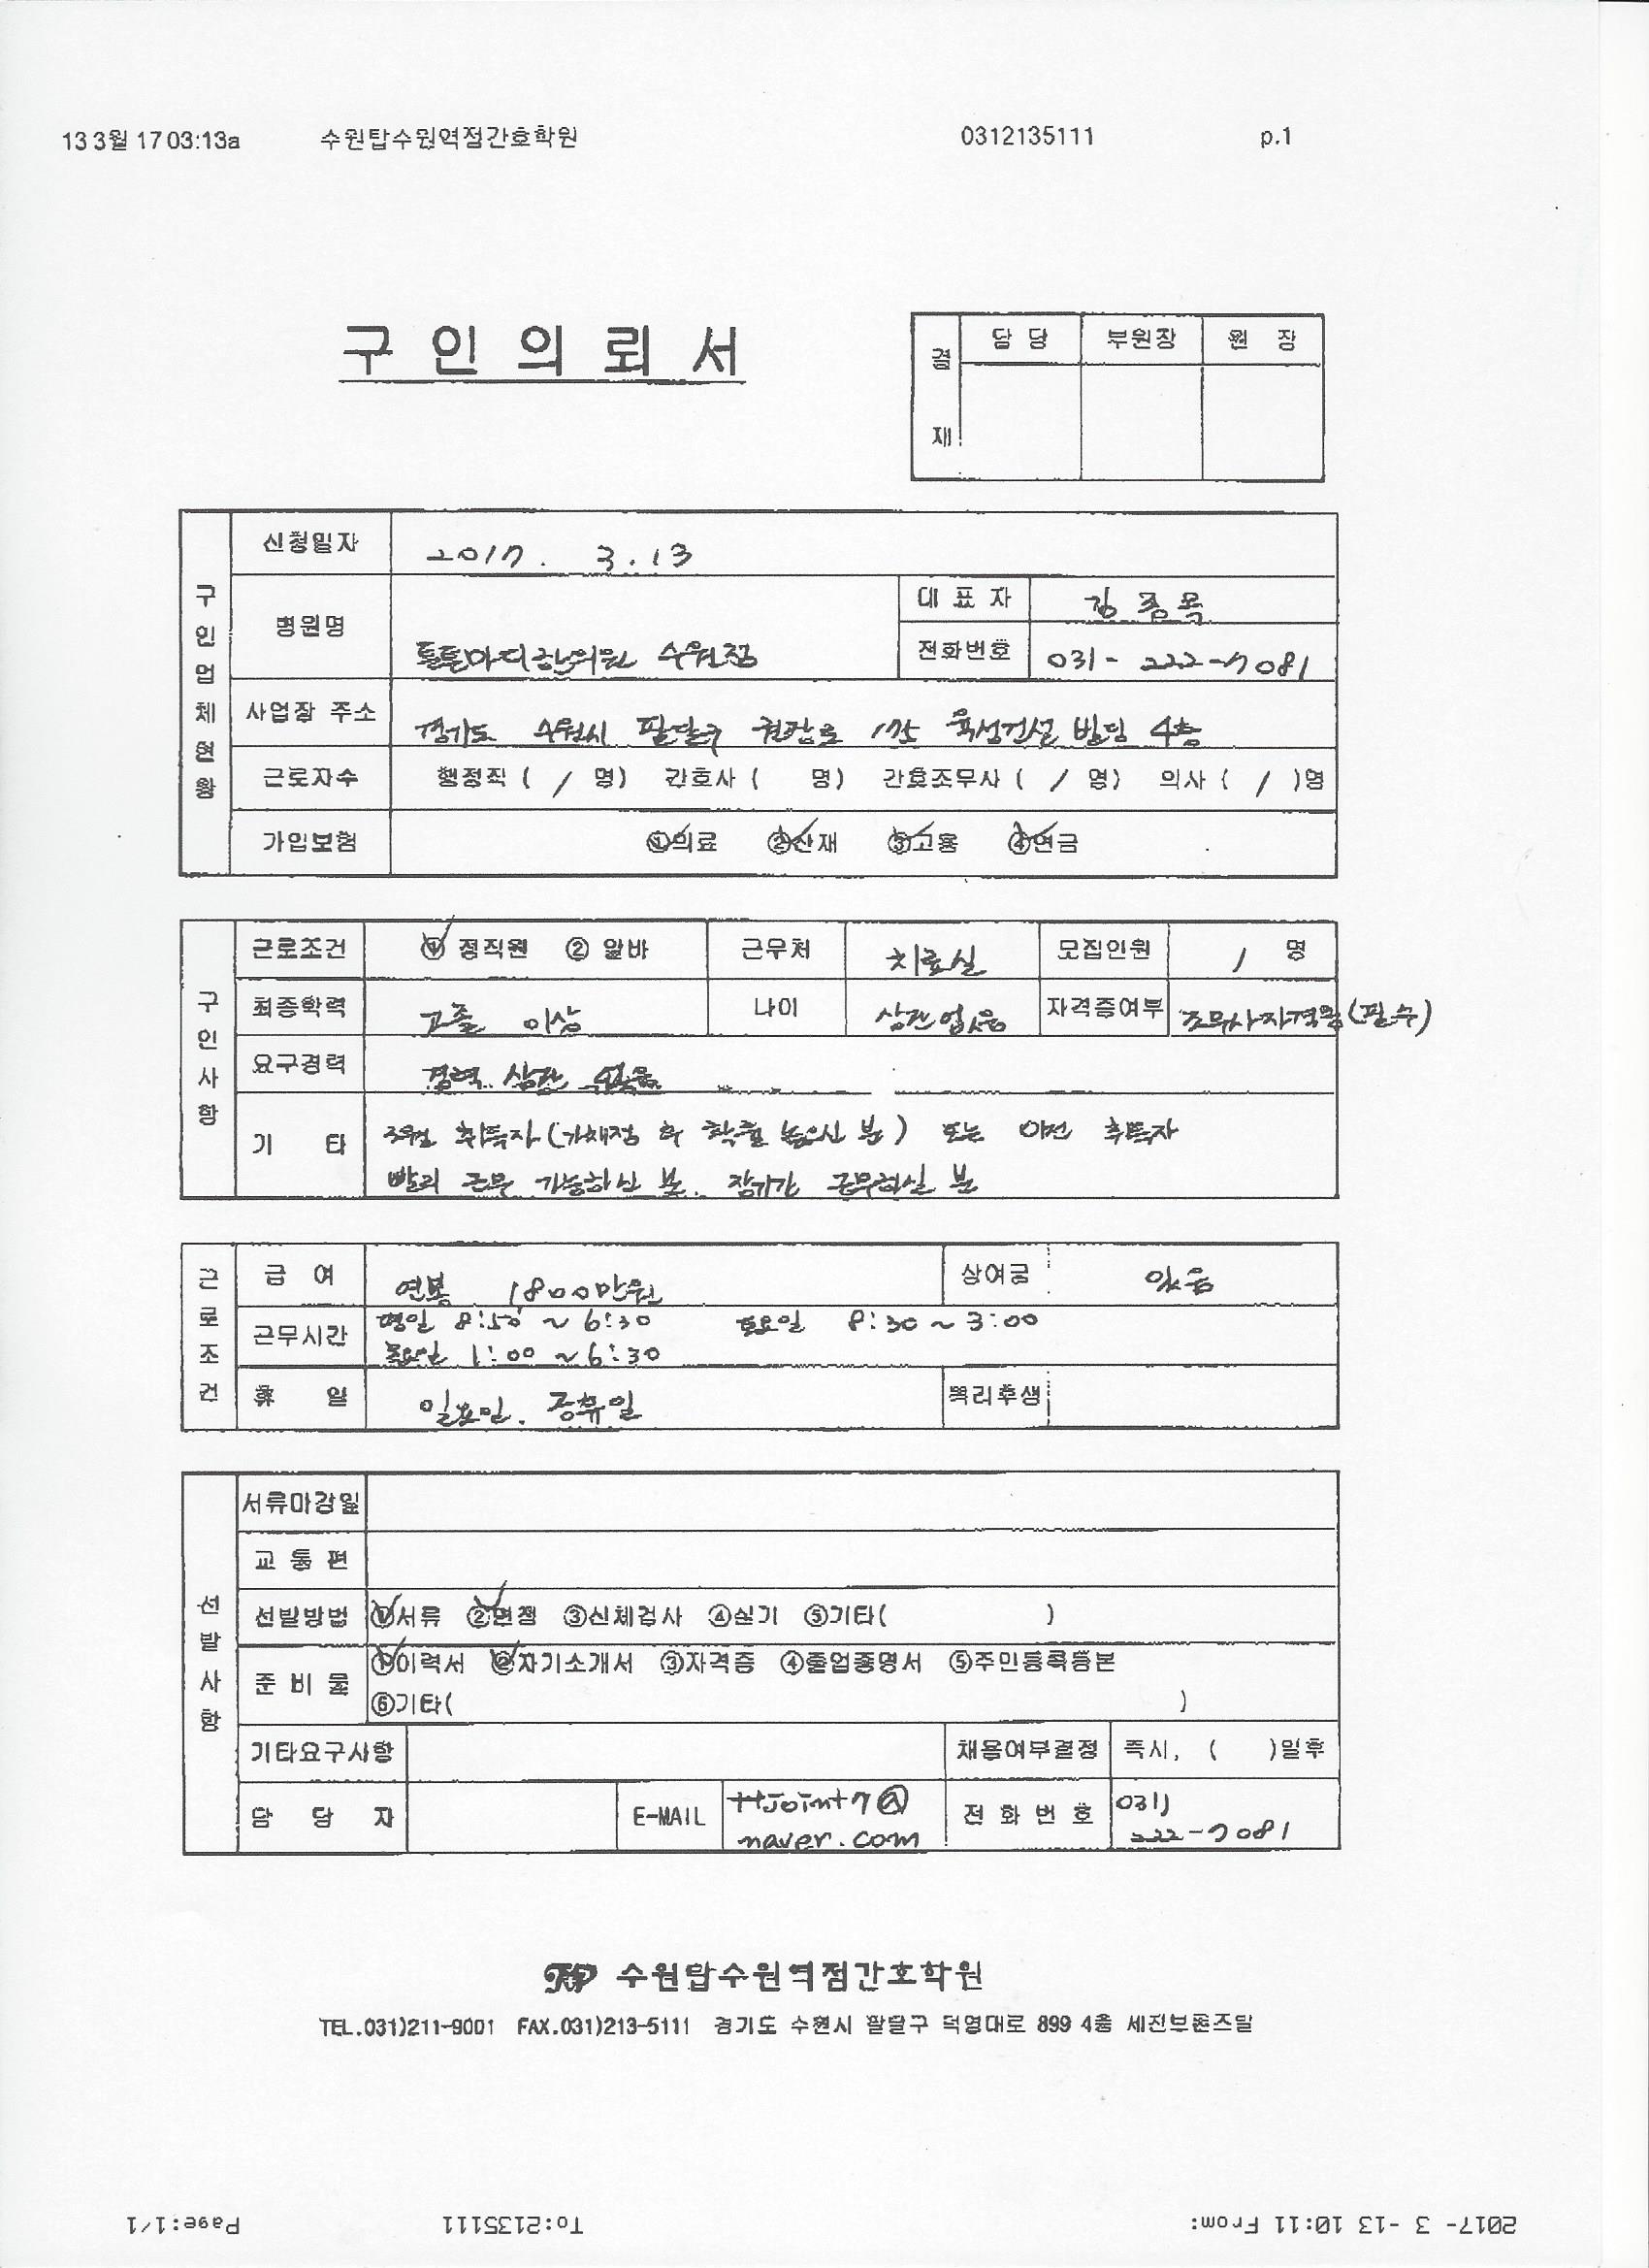 13 3월 17 03:13a 수원탑수원역점간호학원 0312135111 p.1
구 인 의 뢰 서
결 재 담 당 부원장 원 장
구 인 업 체 현 황
신청일자 2017. 3.13
병원명 튼튼마디한의원 수원점
대 표 자 김종목
전화번호 031-222-7081
사업장 주소 경기도 수원시 팔달구 권광로 175 육성건설 빌딩 4층
근로자수 행정직 ( / 명) 간호사 ( 명) 간호조무사 ( / 명) 의사 ( / )명
가입보험 ①의료 ②산재 ③고용 ④연금
구 인 사 항
근로조건 ① 정직원 ② 알바 근무처 치료실 모집인원 1 명
최종학력 고졸 이상 나이 상관없음 자격증여부 조무사자격증(필수)
요구경력 경력 상관 없음
기 타 3월 취득자(가채점 후 확률 높으신 분) 또는 이전 취득자
빨리 근무 가능하신 분. 장기간 근무하실 분
근 로 조 건
급 여 연봉 1800만원 상여금 있음
근무시간 평일 8:50 ~ 6:30 토요일 8:30 ~ 3:00
목요일 1:00 ~ 6:30
휴 일 일요일. 공휴일 복리후생
선 발 사 항
서류마감일
교 통 편
선발방법 ①서류 ②면접 ③신체검사 ④실기 ⑤기타( )
준 비 물 ①이력서 ②자기소개서 ③자격증 ④졸업증명서 ⑤주민등록등본
⑥기타( )
기타요구사항 채용여부결정 즉시, ( )일후
담 당 자 E-MAIL ttjoint7@
naver.com
전 화 번 호 031)
222-7081
TOP 수원탑수원역점간호학원
TEL.031)211-9001 FAX.031)213-5111 경기도 수원시 팔달구 덕영대로 899 4층 세진브론즈빌
2017- 3 -13 10:11 From: To:2135111 Page:1/1